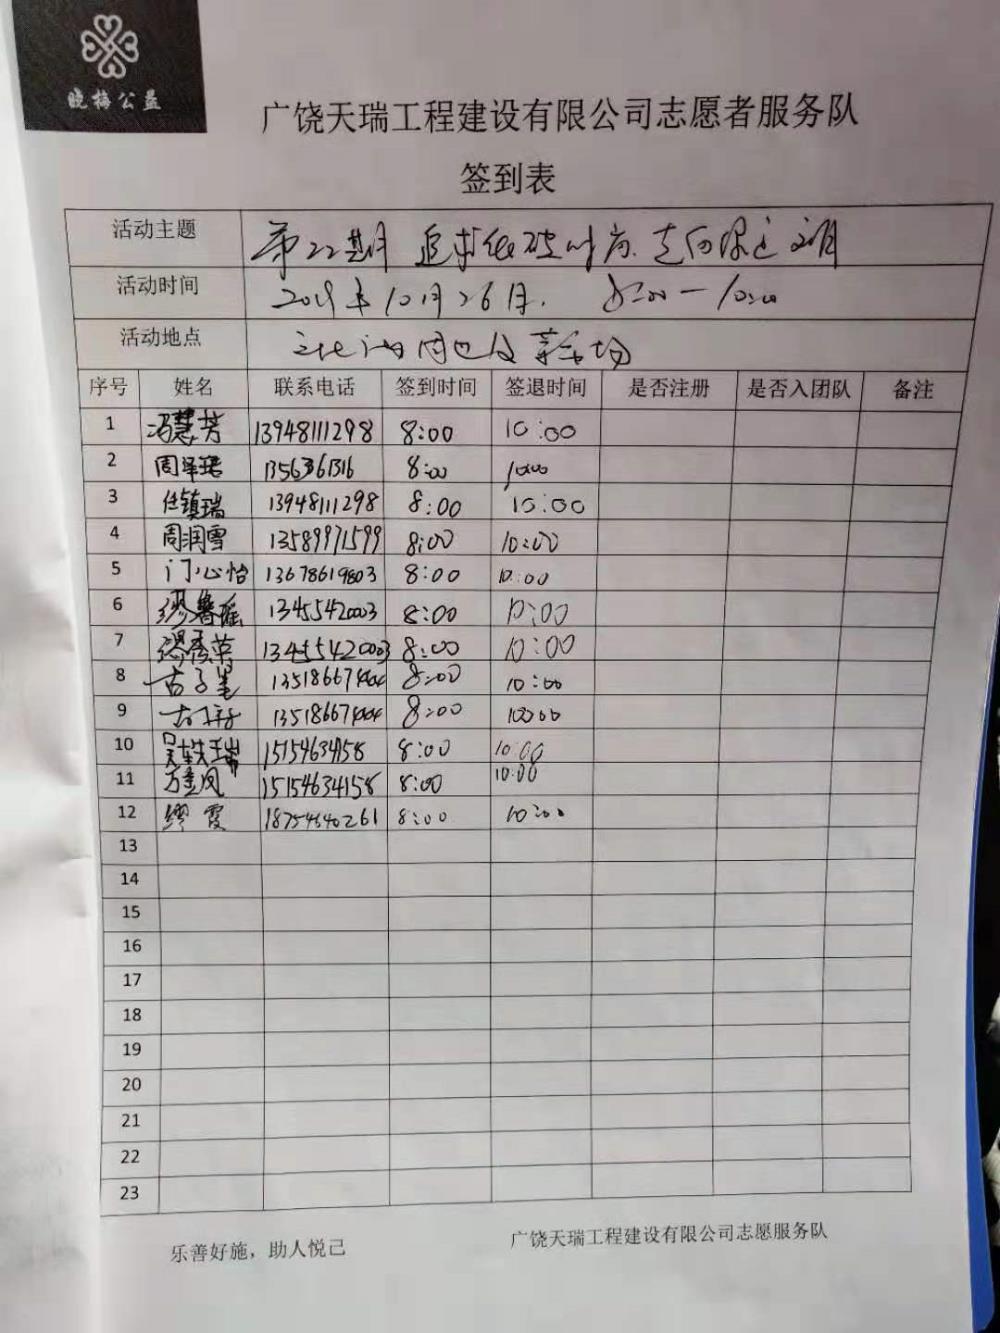 晓梅公益
广饶天瑞工程建设有限公司志愿者服务队
签到表
活动主题 第22期 追求低碳时尚 走向绿色文明
活动时间 2019年10月26日. 8:00-10:00
活动地点 周边及
序号 姓名 联系电话 签到时间 签退时间 是否注册 是否入团队 备注
1 冯慧芳 13948111298 8:00 10:00
2 周泽珺 1356361316 8:00 10:00
3 任镇瑞 13948111298 8:00 10:00
4 周润雪 13589971599 8:00 10:00
5 门心怡 13678619803 8:00 10:00
6 1345542003 8:00 10:00
7 13455420003 8:00 10:00
8 8:00 10:00
9 8:00 10:00
10 吴轶瑞 1515463458 8:00 10:00
11 万金凤 15154634158 8:00 10:00
12 缪霞 18754640261 8:00 10:00
13
14
15
16
17
18
19
20
21
22
23
乐善好施，助人悦己
广饶天瑞工程建设有限公司志愿服务队